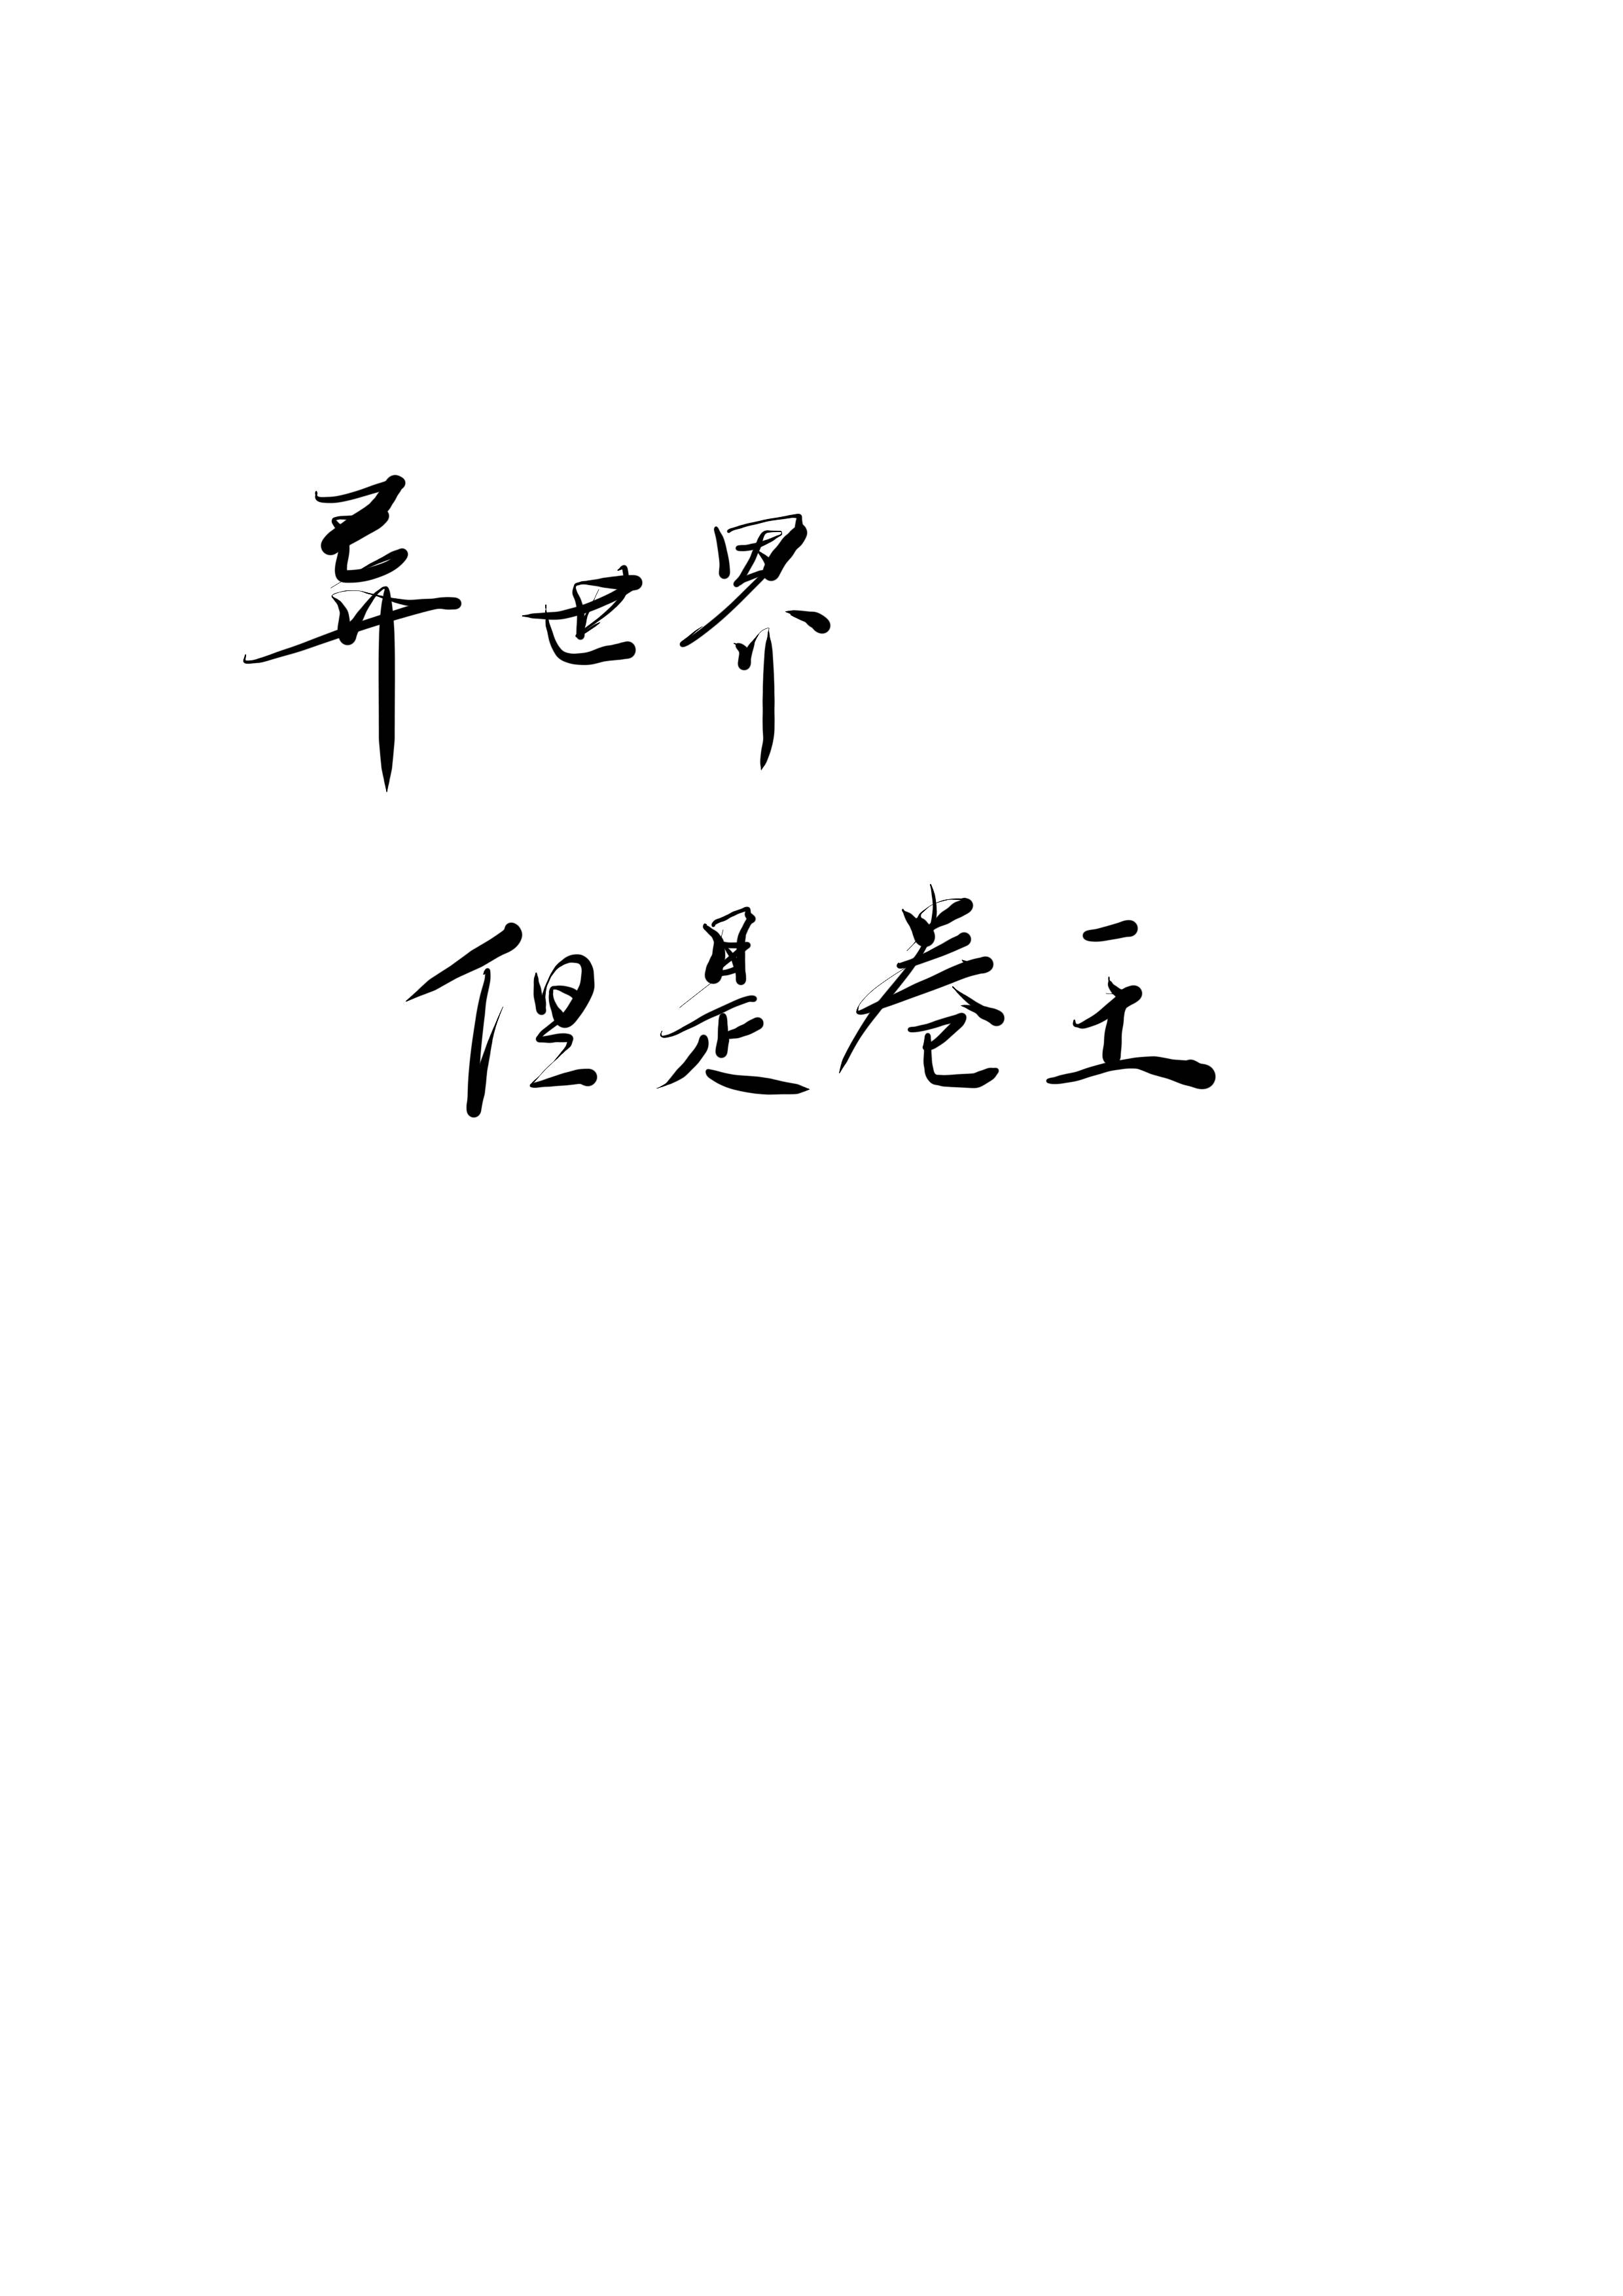 异世界
但是卷王